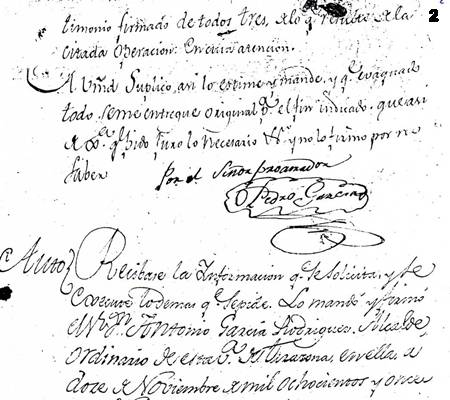 2
timonio firmado de todos tres, a lo q.e resulte de la
citada Operacion: En cuia atencion.
A Vmd Suplico, asi lo estime y mande, y q.e evaquado
todo, se me entregue original p.a el fin indicado, que asi
es q.e pido, juro lo necesario &.a y no lo firmo por no
saber Por el Señor procurador
Pedro Garcia
Auto
Recibase la Informacion q.e se solicita, y se
execute lo demas q.e se pide. Lo mandó y firmó
el Antonio Garcia Rodriguez, Alcalde
Ordinario de esta V.a Tarazona, en ella, a
doze de Noviembre de mil ochocientos y once